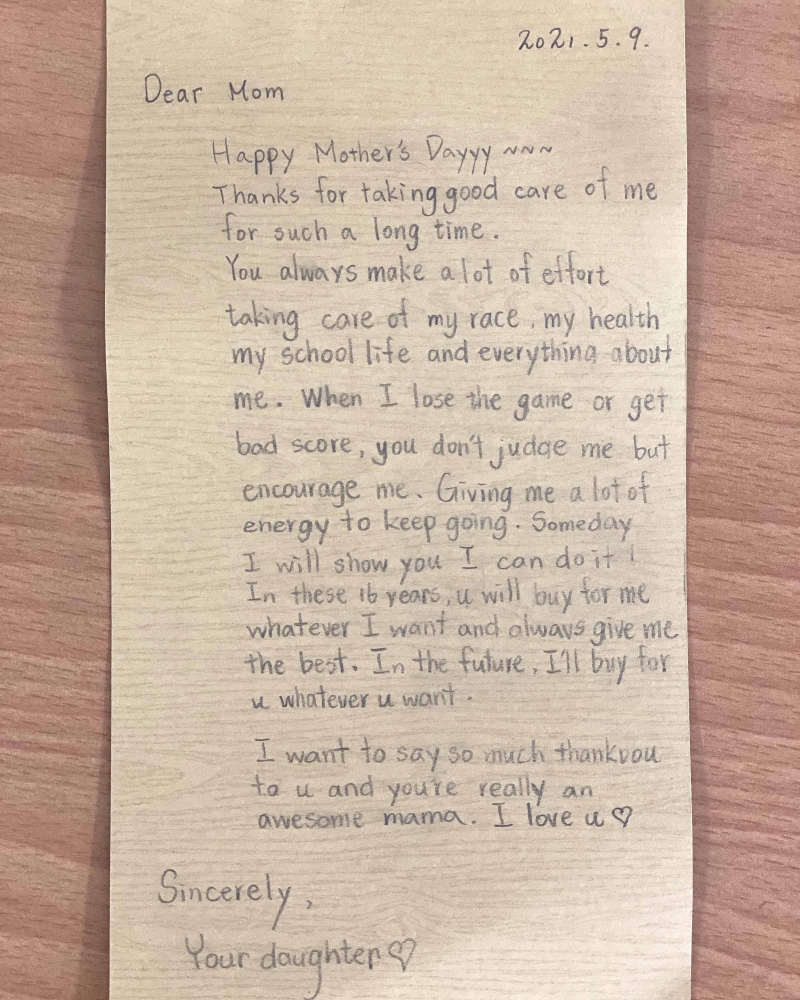 2021.5.9.
Dear Mom
Happy Mother's Dayyy ~~~
Thanks for taking good care of me
for such a long time.
You always make a lot of effort
taking care of my race, my health
my school life and everything about
me. When I lose the game or get
bad score, you don't judge me but
encourage me. Giving me a lot of
energy to keep going. Someday
I will show you I can do it !
In these 16 years, u will buy for me
whatever I want and always give me
the best. In the future, I'll buy for
u whatever u want.
I want to say so much thankyou
to u and you're really an
awesome mama. I love u ♡
Sincerely,
Your daughter ♡